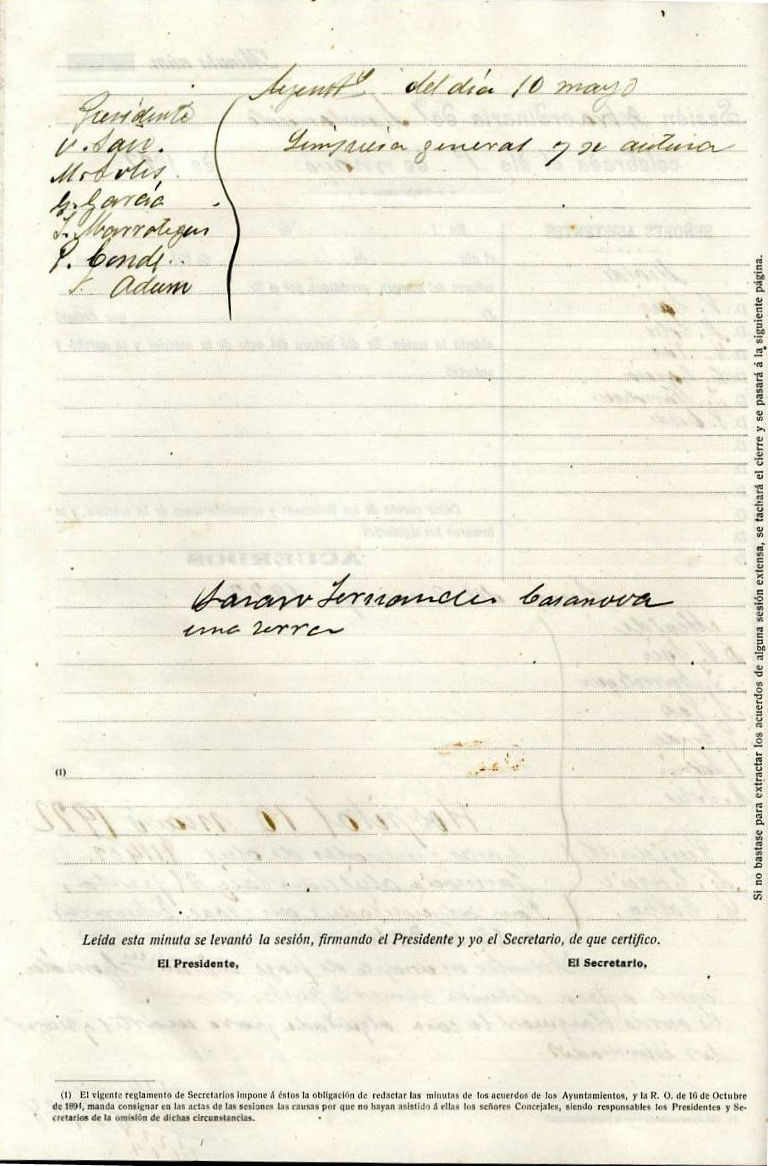 del día 10 mayo
Presidente
V. San.
general y se autura
M. Solis
G. García
P. Conde..
Adum
Fernandez Casanova
una zerra
(1)
Leída esta minuta se levantó la sesión, firmando el Presidente y yo el Secretario, de que certifico.
El Presidente,
El Secretario,
(1) El vigente reglamento de Secretarios impone á éstos la obligación de redactar las minutas de los acuerdos de los Ayuntamientos, y la R. O. de 16 de Octubre
de 1894, manda consignar en las actas de las sesiones las causas por que no hayan asistido á ellas los señores Concejales, siendo responsables los Presidentes y Se-
cretarios de la omisión de dichas circunstancias.
Si no bastase para extractar los acuerdos de alguna sesión extensa, se tachará el cierre y se pasará á la siguiente página.